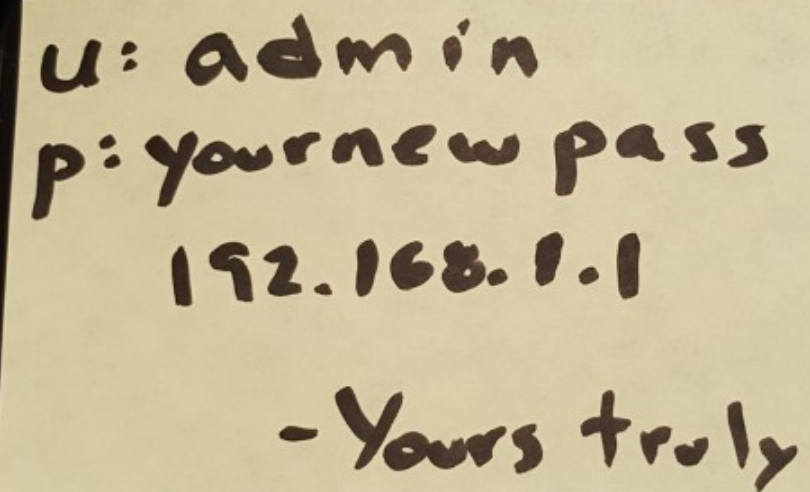 u: admin
p: yournewpass
192.168.1.1
- Yours truly